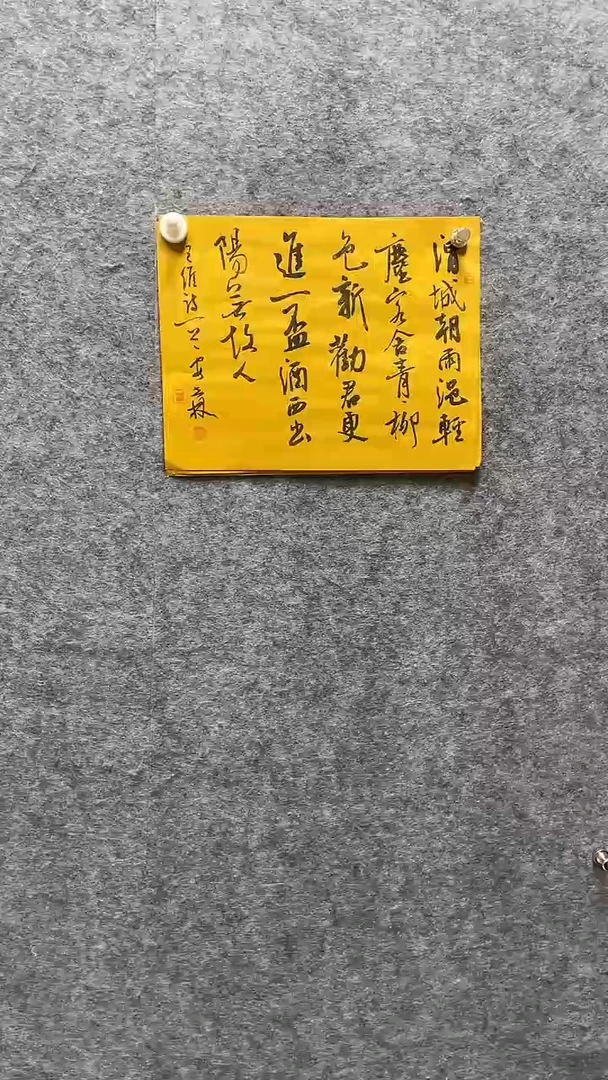 渭城朝雨浥輕
塵客舍青々柳
色新勸君更
進一盃酒西出
陽關無故人
王維詩一首